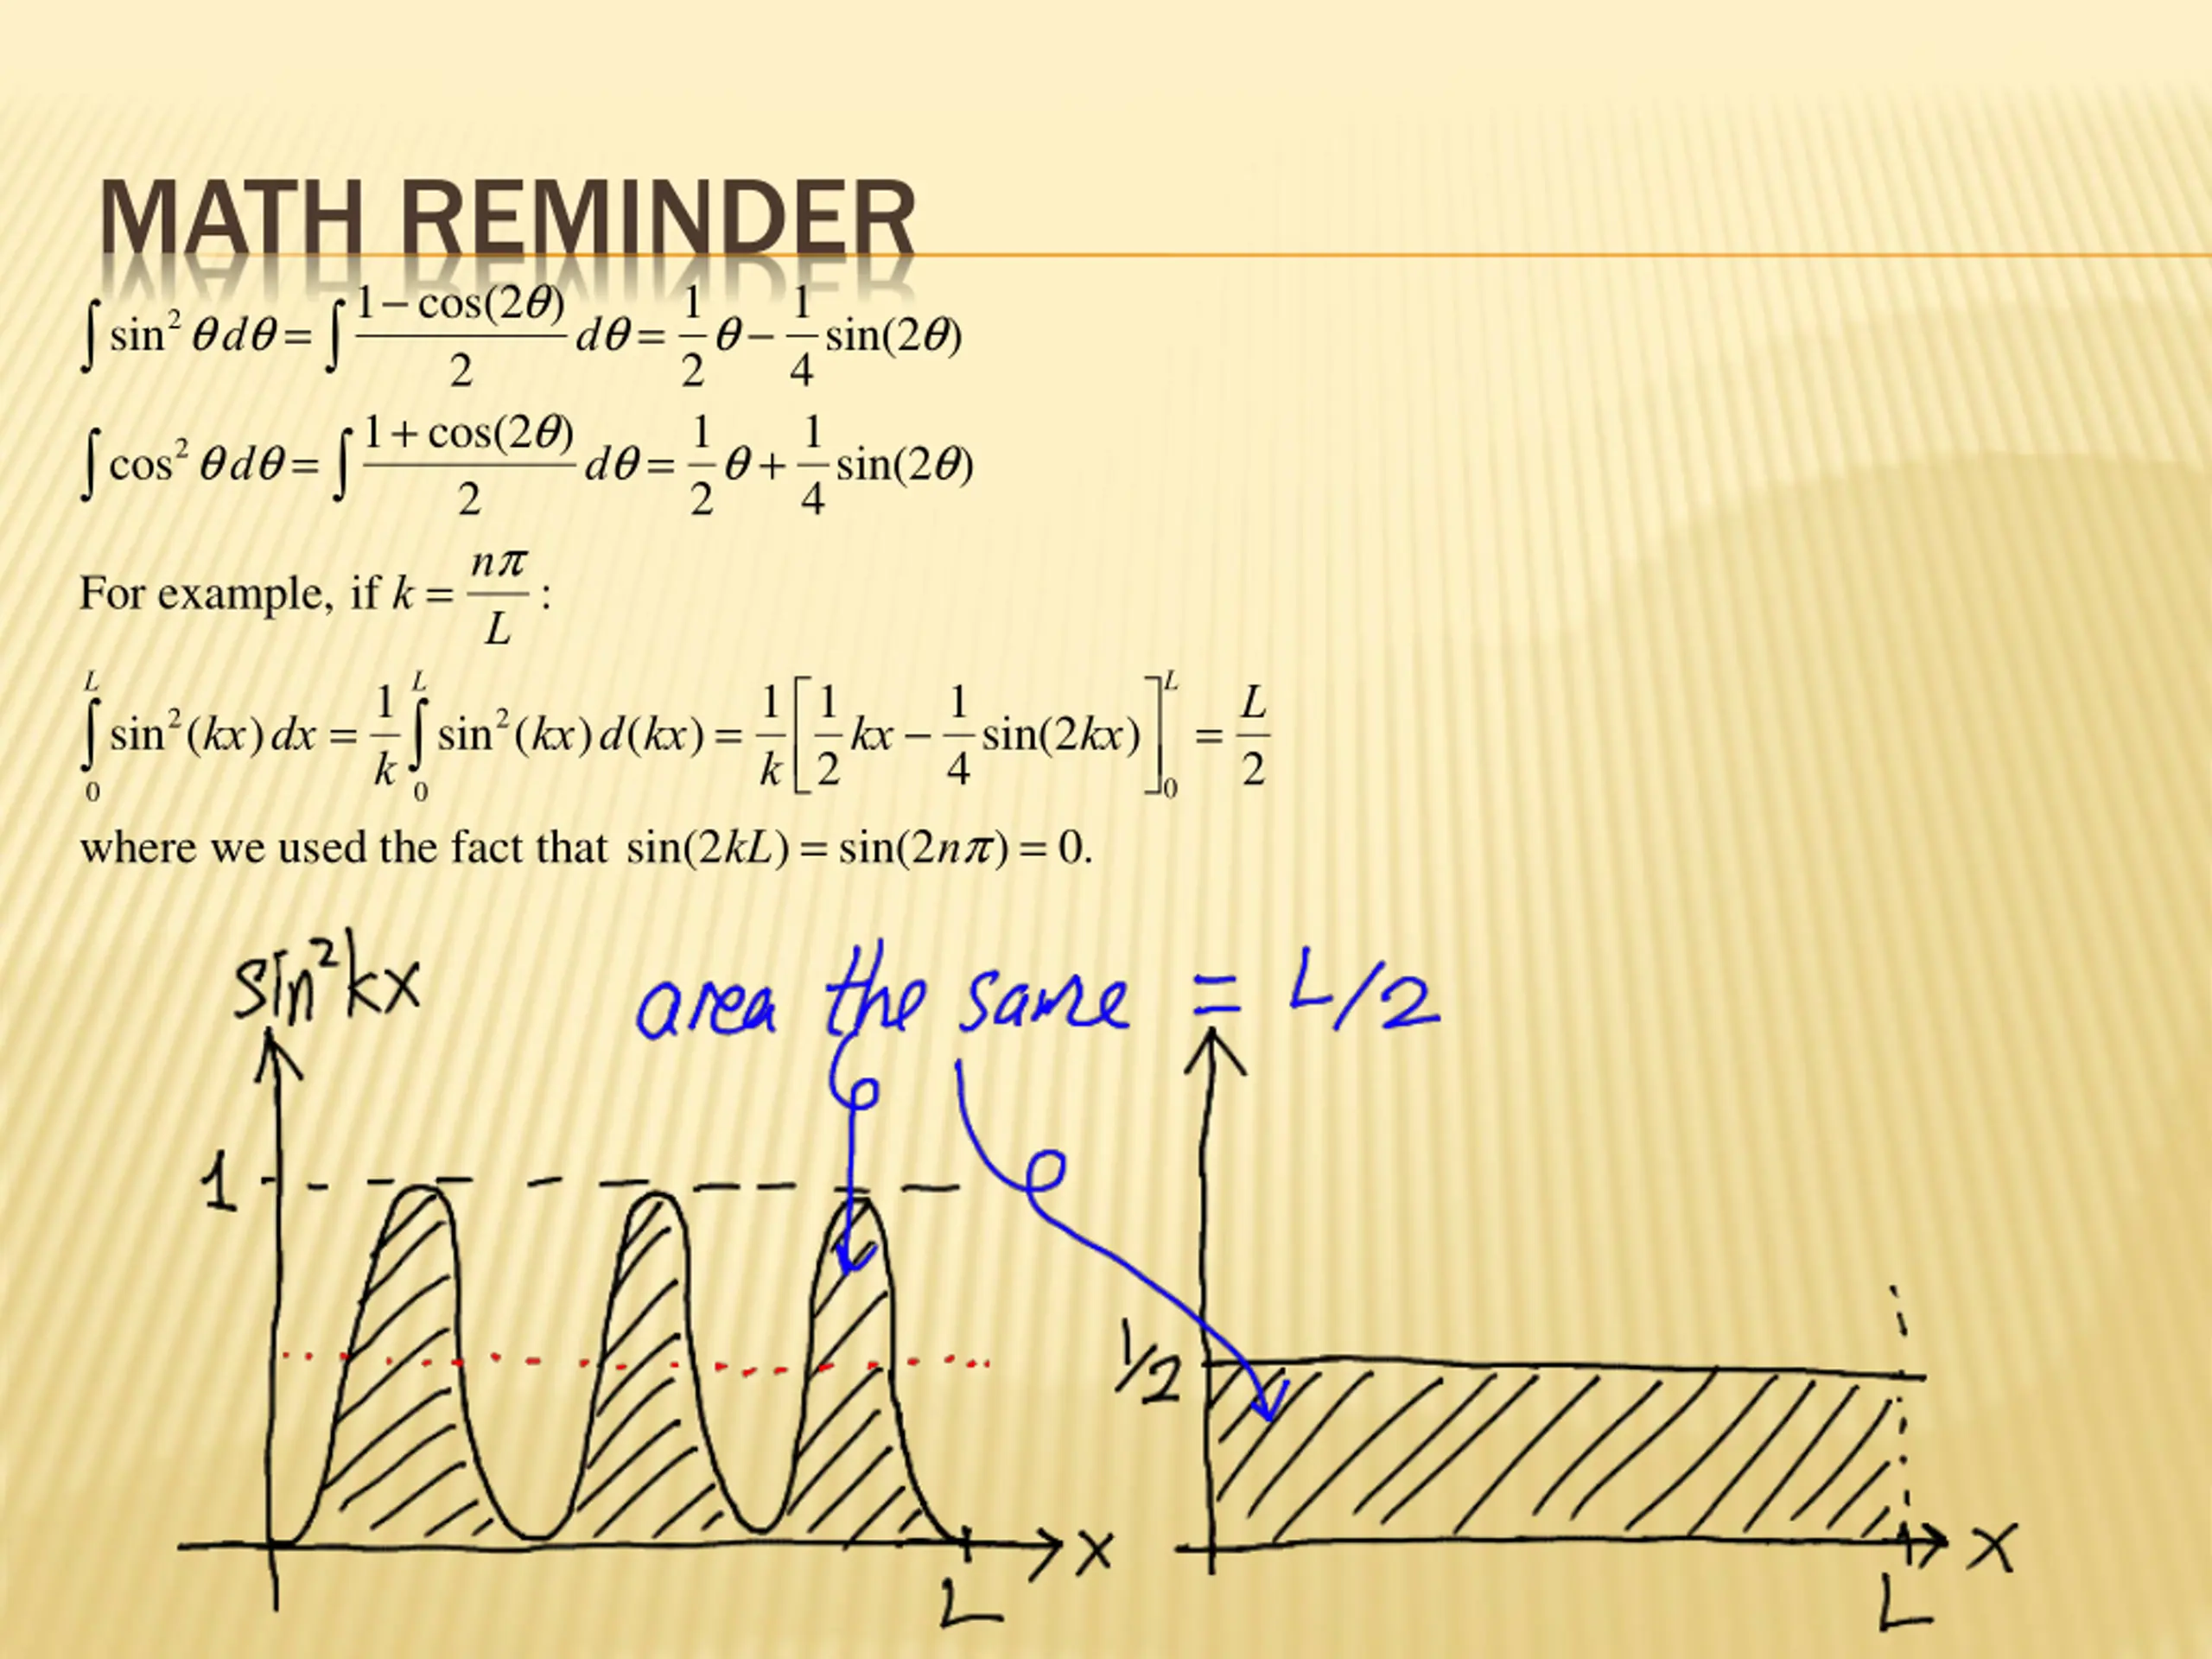 MATH REMINDER
∫ sin² θ dθ = ∫ (1 − cos(2θ))/2 dθ = 1/2 θ − 1/4 sin(2θ)
∫ cos² θ dθ = ∫ (1 + cos(2θ))/2 dθ = 1/2 θ + 1/4 sin(2θ)
For example, if k = nπ/L :
∫₀ᴸ sin²(kx) dx = 1/k ∫₀ᴸ sin²(kx) d(kx) = 1/k [1/2 kx − 1/4 sin(2kx)]₀ᴸ = L/2
where we used the fact that sin(2kL) = sin(2nπ) = 0.
sin²kx
area the same = L/2
1
1/2
x
x
L
L